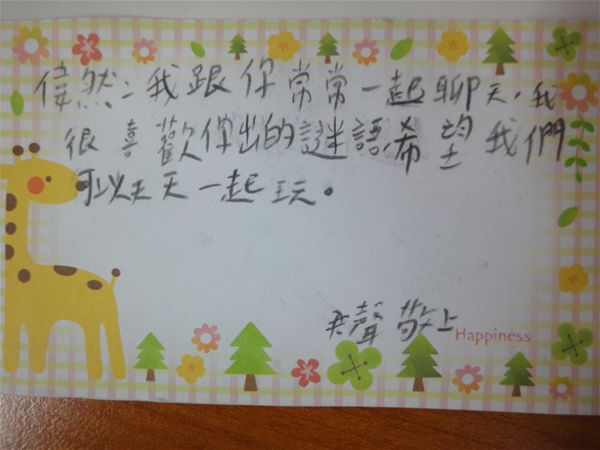 偉然：我跟你常常一起聊天，我
很喜歡你出的謎語，希望我們
可以天天一起玩。
聲 敬上
Happiness